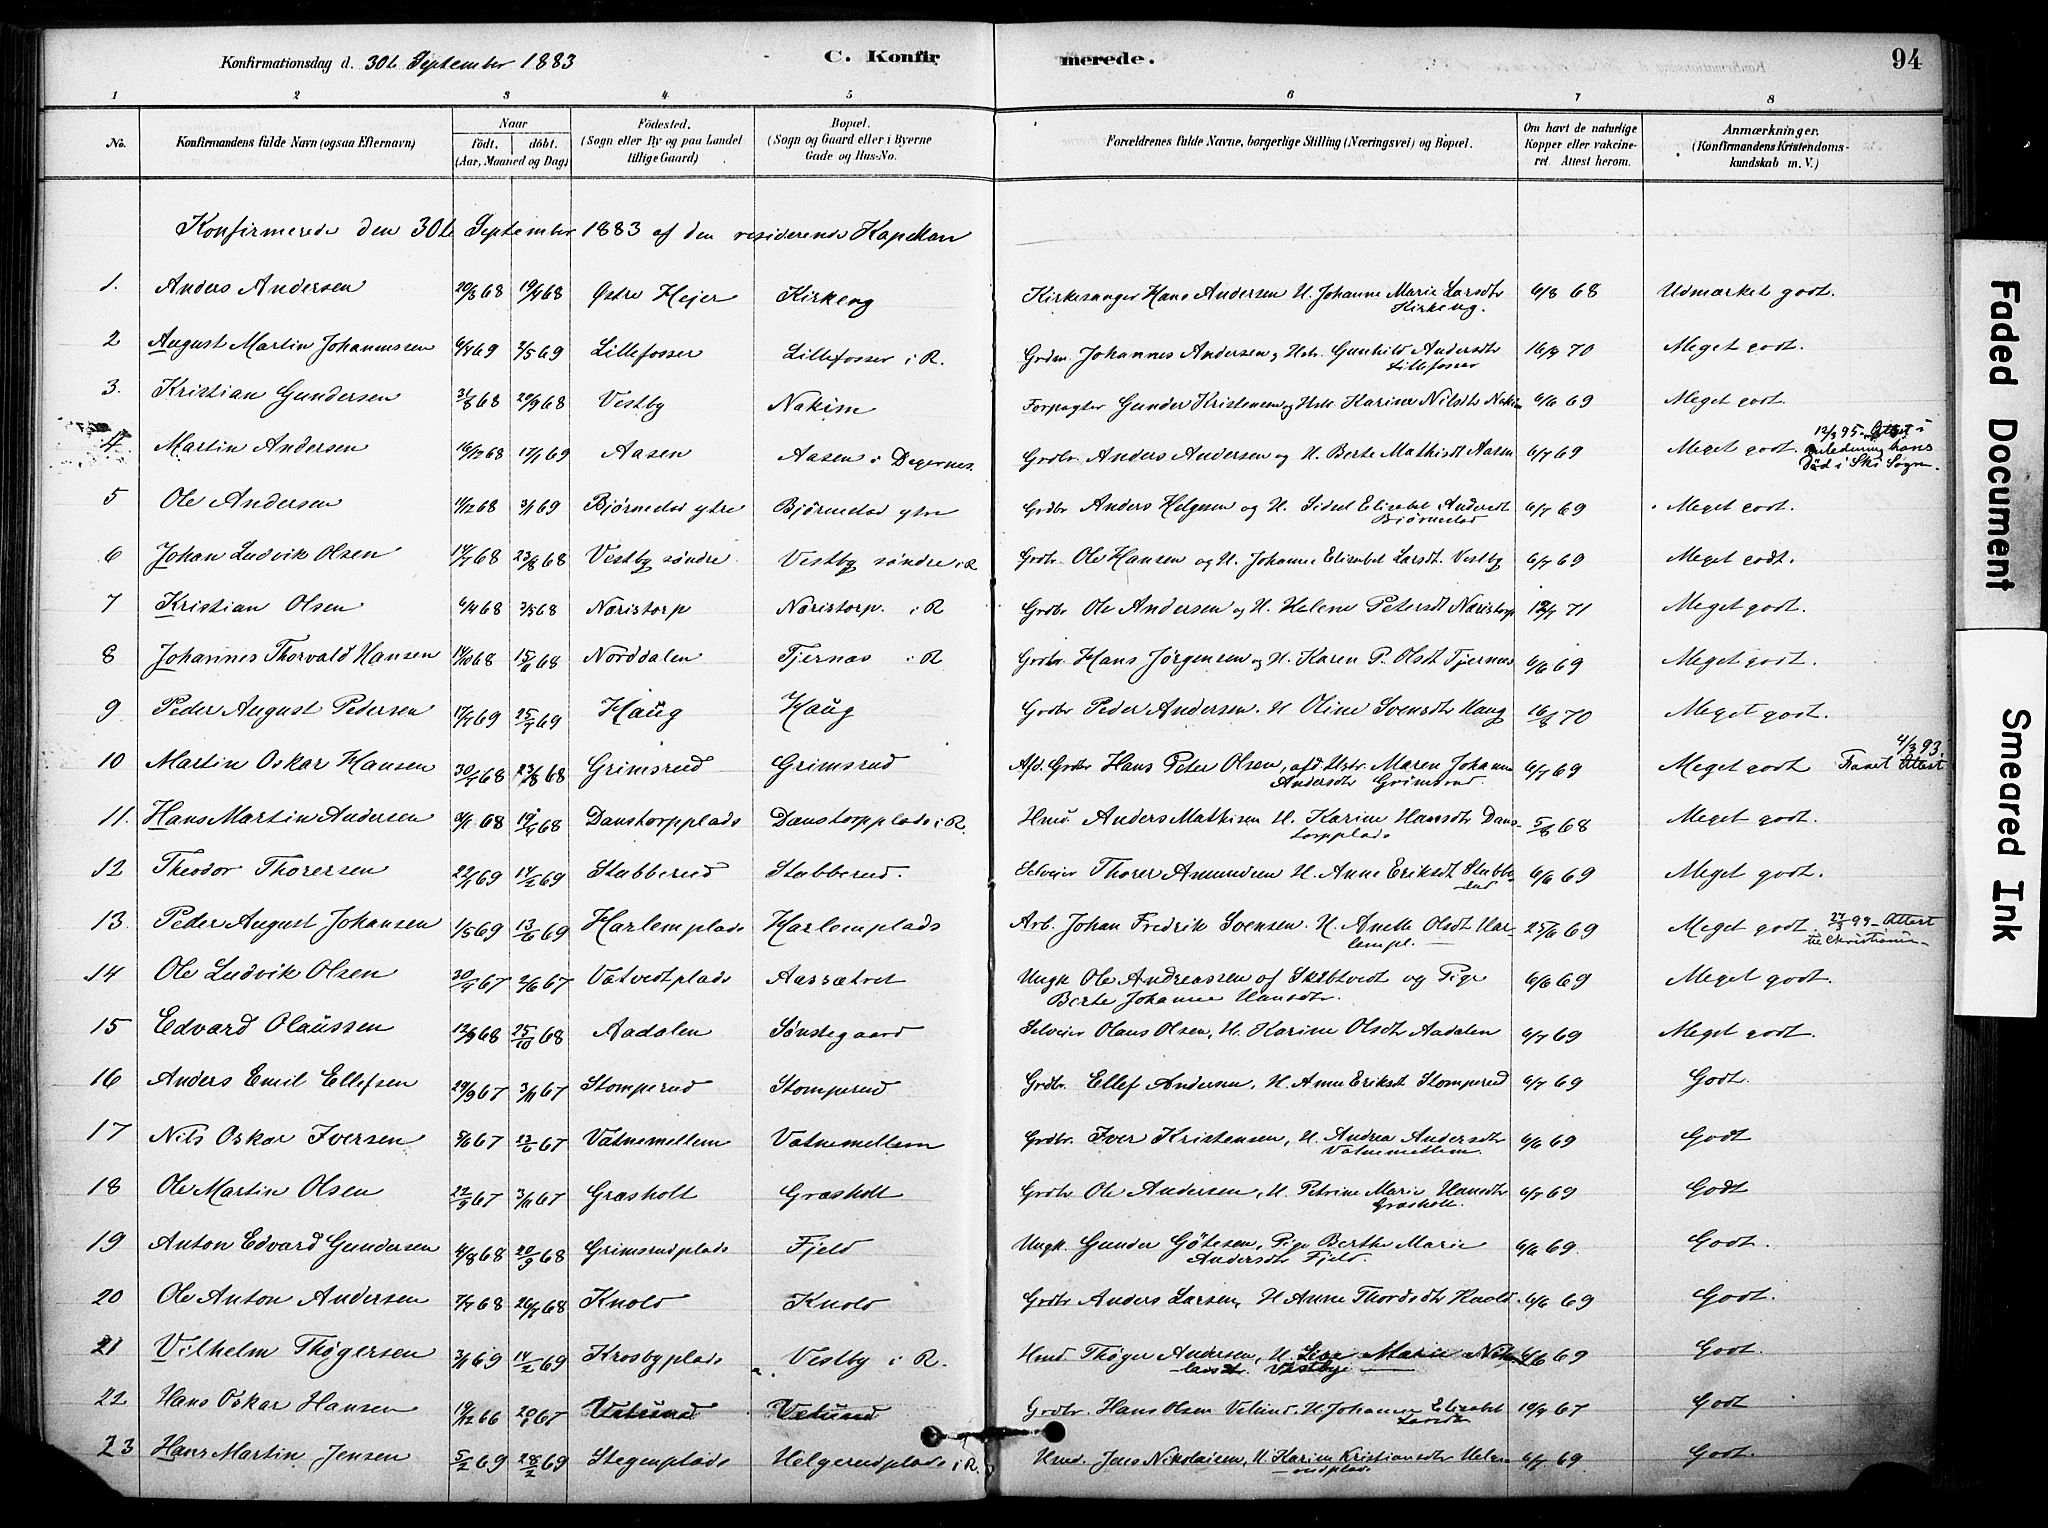 Konfirmationsdag d. 30te September 1883 C. Konfirmerede. 94
1 2 3 4 5 6 7 8
No. Konfirmandens fulde Navn (ogsaa Efternavn) Naar født. døbt. (Aar, Maaned og Dag) Fødested. (Sogn eller By og paa Landet tillige Gaard) Bopæl. (Sogn og Gaard eller i Byerne Gade og Hus-No. Forældrenes fulde Navne, borgerlige Stilling (Næringsvei) og Bopæl. Om havt de naturlige Kopper eller vakcineret. Attest herom. Anmærkninger. (Konfirmandens Kristendomskundskab m. V.)
Konfirmerede den 30te September 1883 af den residerende Kapellan
1. Anders Andersen 20/3 68 19/4 68 Østre Hejer Kirkeng Kirkesanger Hans Andersen H. Johanne Marie Larsdtr Kirkeng. 6/8 68 Udmærket godt.
2 August Martin Johannessen 6/4 69 2/5 69 Lillefosser Lillefosser i R. Grdm. Johannes Andersen, Hstr. Gunhild Andersdtr Lillefosser 16/8 70 Meget godt.
3. Kristian Gundersen 31/8 68 20/9 68 Vestby Nakim Forpagter Gunder Kristensen og Hstr. Karine Nilsdtr Nakim 6/6 69 Meget godt.
4 Martin Andersen 16/12 68 17/1 69 Aasen Aasen i Degernes. Grdbr. Anders Andersen og H. Berte Mathisdt Aasen 6/7 69 Meget godt. 12/3 95. Attest i anledning hans Død i Ski Sogn.
5 Ole Andersen 11/12 68 3/1 69 Bjørnestad ytre Bjørnestad ytre Grdbr Anders Helgesen og H. Sidsel Elisabet Andersdt Bjørnestad 6/7 69 Meget godt.
6 Johan Ludvik Olsen 14/7 68 23/8 68 Vestby søndre Vestby søndre i R Grdbr. Ole Hansen og H. Johanne Elisabet Larsdt. Vestby 6/7 69 Meget godt.
7 Kristian Olsen 6/4 68 3/5 68 Næristorp Næristorp. i R Grdbr Ole Andersen og H. Helene Petersdt Næristorp 12/7 71 Meget godt.
8 Johannes Thorvald Hansen 14/10 68 15/11 68 Norddalen Tjernæs i R Grdbr. Hans Jørgensen og H. Karen P. Olsdt Tjernæs 6/6 69 Meget godt.
9 Peder August Pedersen 17/7 69 25/7 69 Haug Haug Grdbr Peder Andersen. H Oline Svensdtr Haug 16/8 70 Meget godt.
10 Martin Oskar Hansen 30/7 68 23/8 68 Grimsrud Grimsrud Afd. Grdbr Hans Peter Olsen, afd. Hstr. Maren Johanne Andersdtr Grimsrud. 6/7 69 Meget godt 4/3 93. Faaet Attest
11. Hans Martin Andersen 3/1 68 19/4 68 Danstorpplads Danstorpplads i R. Hmd Anders Mathisen H. Karine Hansdtr Danstorpplads 5/8 68 Meget godt.
12 Theodor Thorersen 22/1 69 14/2 69 Stubberud Stubberud. Selveier Thorer Amundsen H. Anne Eriksdt Stubberud 6/6 69 Meget godt.
13. Peder August Johansen 1/5 69 13/6 69 Harlemplads Harlemplads Arb. Johan Fredrik Svensen. H. Anette Olsdt Harlempl. 25/6 69 Meget godt. 27/3 99 - Attest til Christiania
14 Ole Ludvik Olsen 30/4 67 2/6 67 Vatvedtplads Aassætret Ungk Ole Andreassen af Skibtvedt og Pige Berte Johanne Hansdtr. 6/6 69 Meget godt.
15 Edvard Olaussen 12/9 68 25/10 68 Aadalen Sønstegaard Selveier Olaus Olsen, H. Karine Olsdt Aadalen 6/7 69 Meget godt.
16 Anders Emil Ellefsen 29/9 67 3/11 67 Stomperud Stomperud Grdbr. Ellef Andersen, H. Anne Eriksdt Stomperud 6/7 69 Godt.
17 Nils Oskar Iversen 5/6 67 23/6 67 Vatnemellem Vatnemellem Grdbr. Iver Kristensen, H. Andrea Andersdtr Vatnemellem. 6/6 69 Godt
18 Ole Martin Olsen 22/9 67 3/11 67 Græsholt Græsholt Grdbr Ole Andersen, H Petrine Marie Hansdtr Græsholt. 6/7 69 Godt
19 Anton Edvard Gundersen 4/8 68 20/9 68 Grimsrudplads Fjeld Ungk. Gunder Götesen, Pige Berthe Marie Andersdtr Fjeld. 6/6 69. Godt.
20 Ole Anton Andersen 7/7 68 26/7 68 Knold Knold Grdbr Anders Larsen, H Anne Thordsdtr Knold. 6/6 69 Godt.
21 Vilhelm Thøgersen 3/1 69 14/2 69 Krosbyplads Vestby i R. Hmd. Thøger Andersen, H. Lise Marie Vestbyeie 4/6 69 Godt.
22 Hans Oskar Hansen 19/12 66 20/1 67 Velund Velund Grdbr. Hans Olsen Velund. H. Johanne Elisabet Larsdtr 19/8 67 Godt
23 Hans Martin Jensen 5/2 69 28/2 69 Stegenplads Helgerudplads i R. Hmd. Jens Nikolaisen, H Karine Kristiansdtr Helgerudplads 6/7 69 Godt.
Faded Document
Smeared Ink